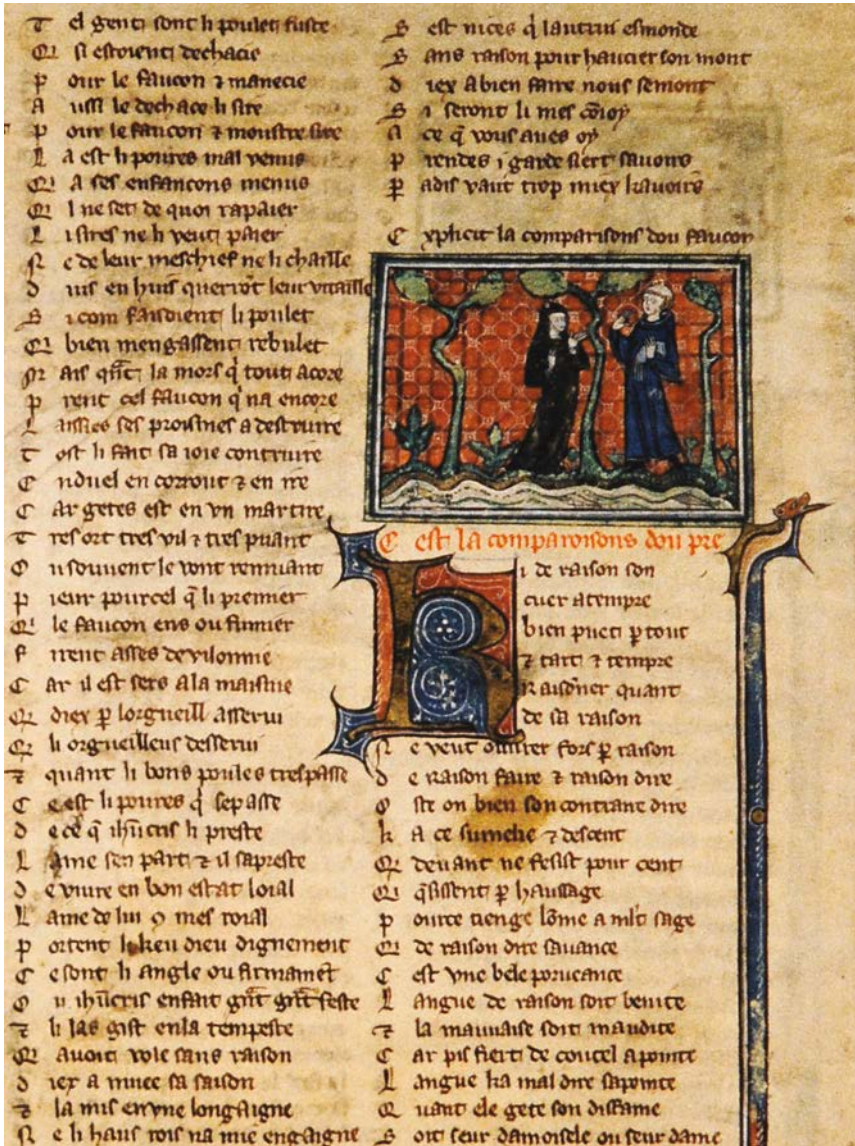 T el gent sont li poulet fuste
Q si estoient dechacie
P our le faucon ⁊ manecie
A ussi le dechace li sire
P our le faucon ⁊ moustre sire
L a est li poures mal venus
Q A ses enfancons menus
Q l ne set de quoi rapaier
L i sires ne li veut paier
N e de leur meschief ne li chaille
D uis en huis querrōt leur vitaille
S i com faisoient li poulet
Q bien mengassent rebulet
M ais qñt la mors q̄ tout acore
P rent cel faucon q̄ na encore
L aissies ses proismes a destruire
T ost li fait sa ioie contruire
E n duel en corrout ⁊ en ire
C ar getes est en vn martire
T res ort tres vil ⁊ tres puant
O u souuent le vont remuant
P ieur pourcel q̄ li premier
Q le faucon ens ou fumier
F irent asses de vilonnie
C ar il est sers a la maisnie
Q diex p̱ lorgueill asserui
Q li orgueilleus desserui
⁊ quant li bons poules trespasse
C e est li poures q̄ se passe
D e ce q̄ ihūcris li preste
L ame sen part ⁊ il sapreste
D e viure en bon estat loial
L ame de lui o mes roial
P ortent li keu dieu dignement
C e sont li angle ou firmamēt
O u ihūcris en fait grāt grāt feste
⁊ li las gist en la tempeste
Q auoit vole sans raison
D iex a muee sa saison
⁊ la mis en vne longaigne
N e li haus rois na mie engaigne
S est nices q̄ lautrui esmonde
S ans raison pour haucier son mont
D iex a bien faire nous semont
S i seront li mes cōioy
A ce q̄ vous aues oy
P rendes i garde siert sauoirs
P adis vaut trop miex kauoirs
E xplicit la comparisons dou faucon
C est la comparoisons dou pre
K i de raison son
cuer atempre
bien puet p̱ tout
⁊ tart ⁊ tempre
Raisōner quant
de sa raison
N e veut ouurer fors p̱ raison
D e raison faire ⁊ raison dire
O ste on bien son contraire dire
K a ce sumelie ⁊ descent
Q deuant ne fesist pour cent
Q q̄sissent p̱ haussage
P our ce tienge lōme a mlt̄ sage
Q de raison dire sauance
C est vne bele porueance
L angue de raison soit benite
⁊ la mauuaise soit maudite
C ar pis fiert de coutel a pointe
L angue ka mal dire sapointe
Q uant ele gete son diffame
S oit seur damoisele ou seur dame